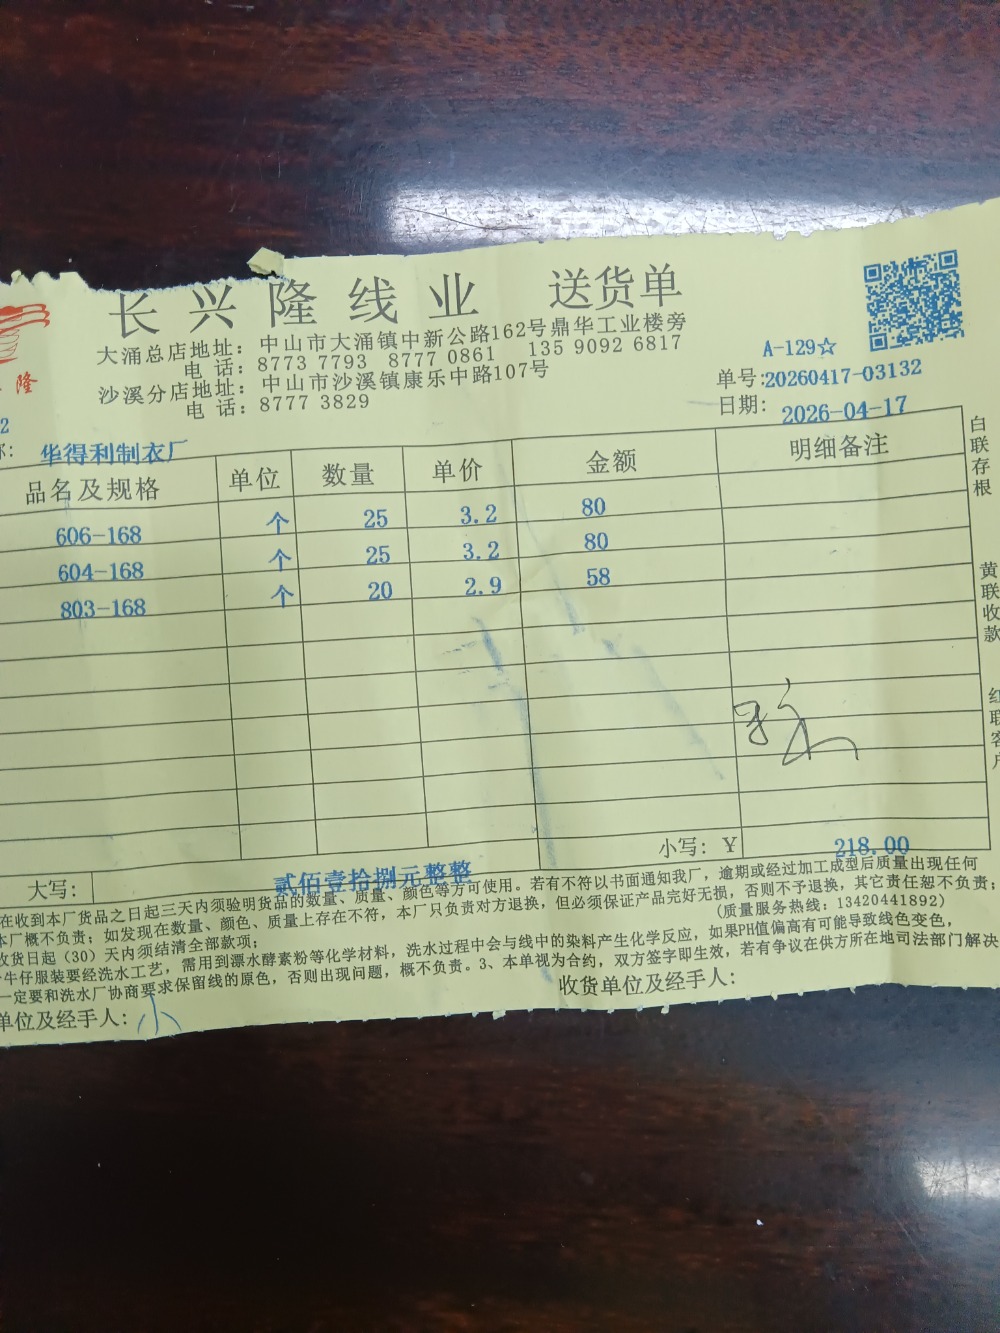 长兴隆线业 送货单
大涌总店地址：中山市大涌镇中新公路162号鼎华工业楼旁
电 话：8773 7793 8777 0861 135 9092 6817
沙溪分店地址：中山市沙溪镇康乐中路107号
电 话：8777 3829
隆
A-129☆
单号：20260417-03132
日期：2026-04-17
2
华得利制衣厂
品名及规格 单位 数量 单价 金额 明细备注
606-168 个 25 3.2 80
604-168 个 25 3.2 80
803-168 个 20 2.9 58
白联存根
黄联收款
红联客户
小写：￥ 218.00
大写： 贰佰壹拾捌元整整
在收到本厂货品之日起三天内须验明货品的数量、质量、颜色等方可使用。若有不符以书面通知我厂，逾期或经过加工成型后质量出现任何
本厂概不负责；如发现在数量、颜色、质量上存在不符，本厂只负责对方退换，但必须保证产品完好无损，否则不予退换，其它责任恕不负责；
收货日起（30）天内须结清全部款项； （质量服务热线：13420441892）
牛仔服装要经洗水工艺，需用到漂水酵素粉等化学材料，洗水过程中会与线中的染料产生化学反应，如果PH值偏高有可能导致线色变色，
一定要和洗水厂协商要求保留线的原色，否则出现问题，概不负责。3、本单视为合约，双方签字即生效，若有争议在供方所在地司法部门解决
单位及经手人：小 收货单位及经手人：